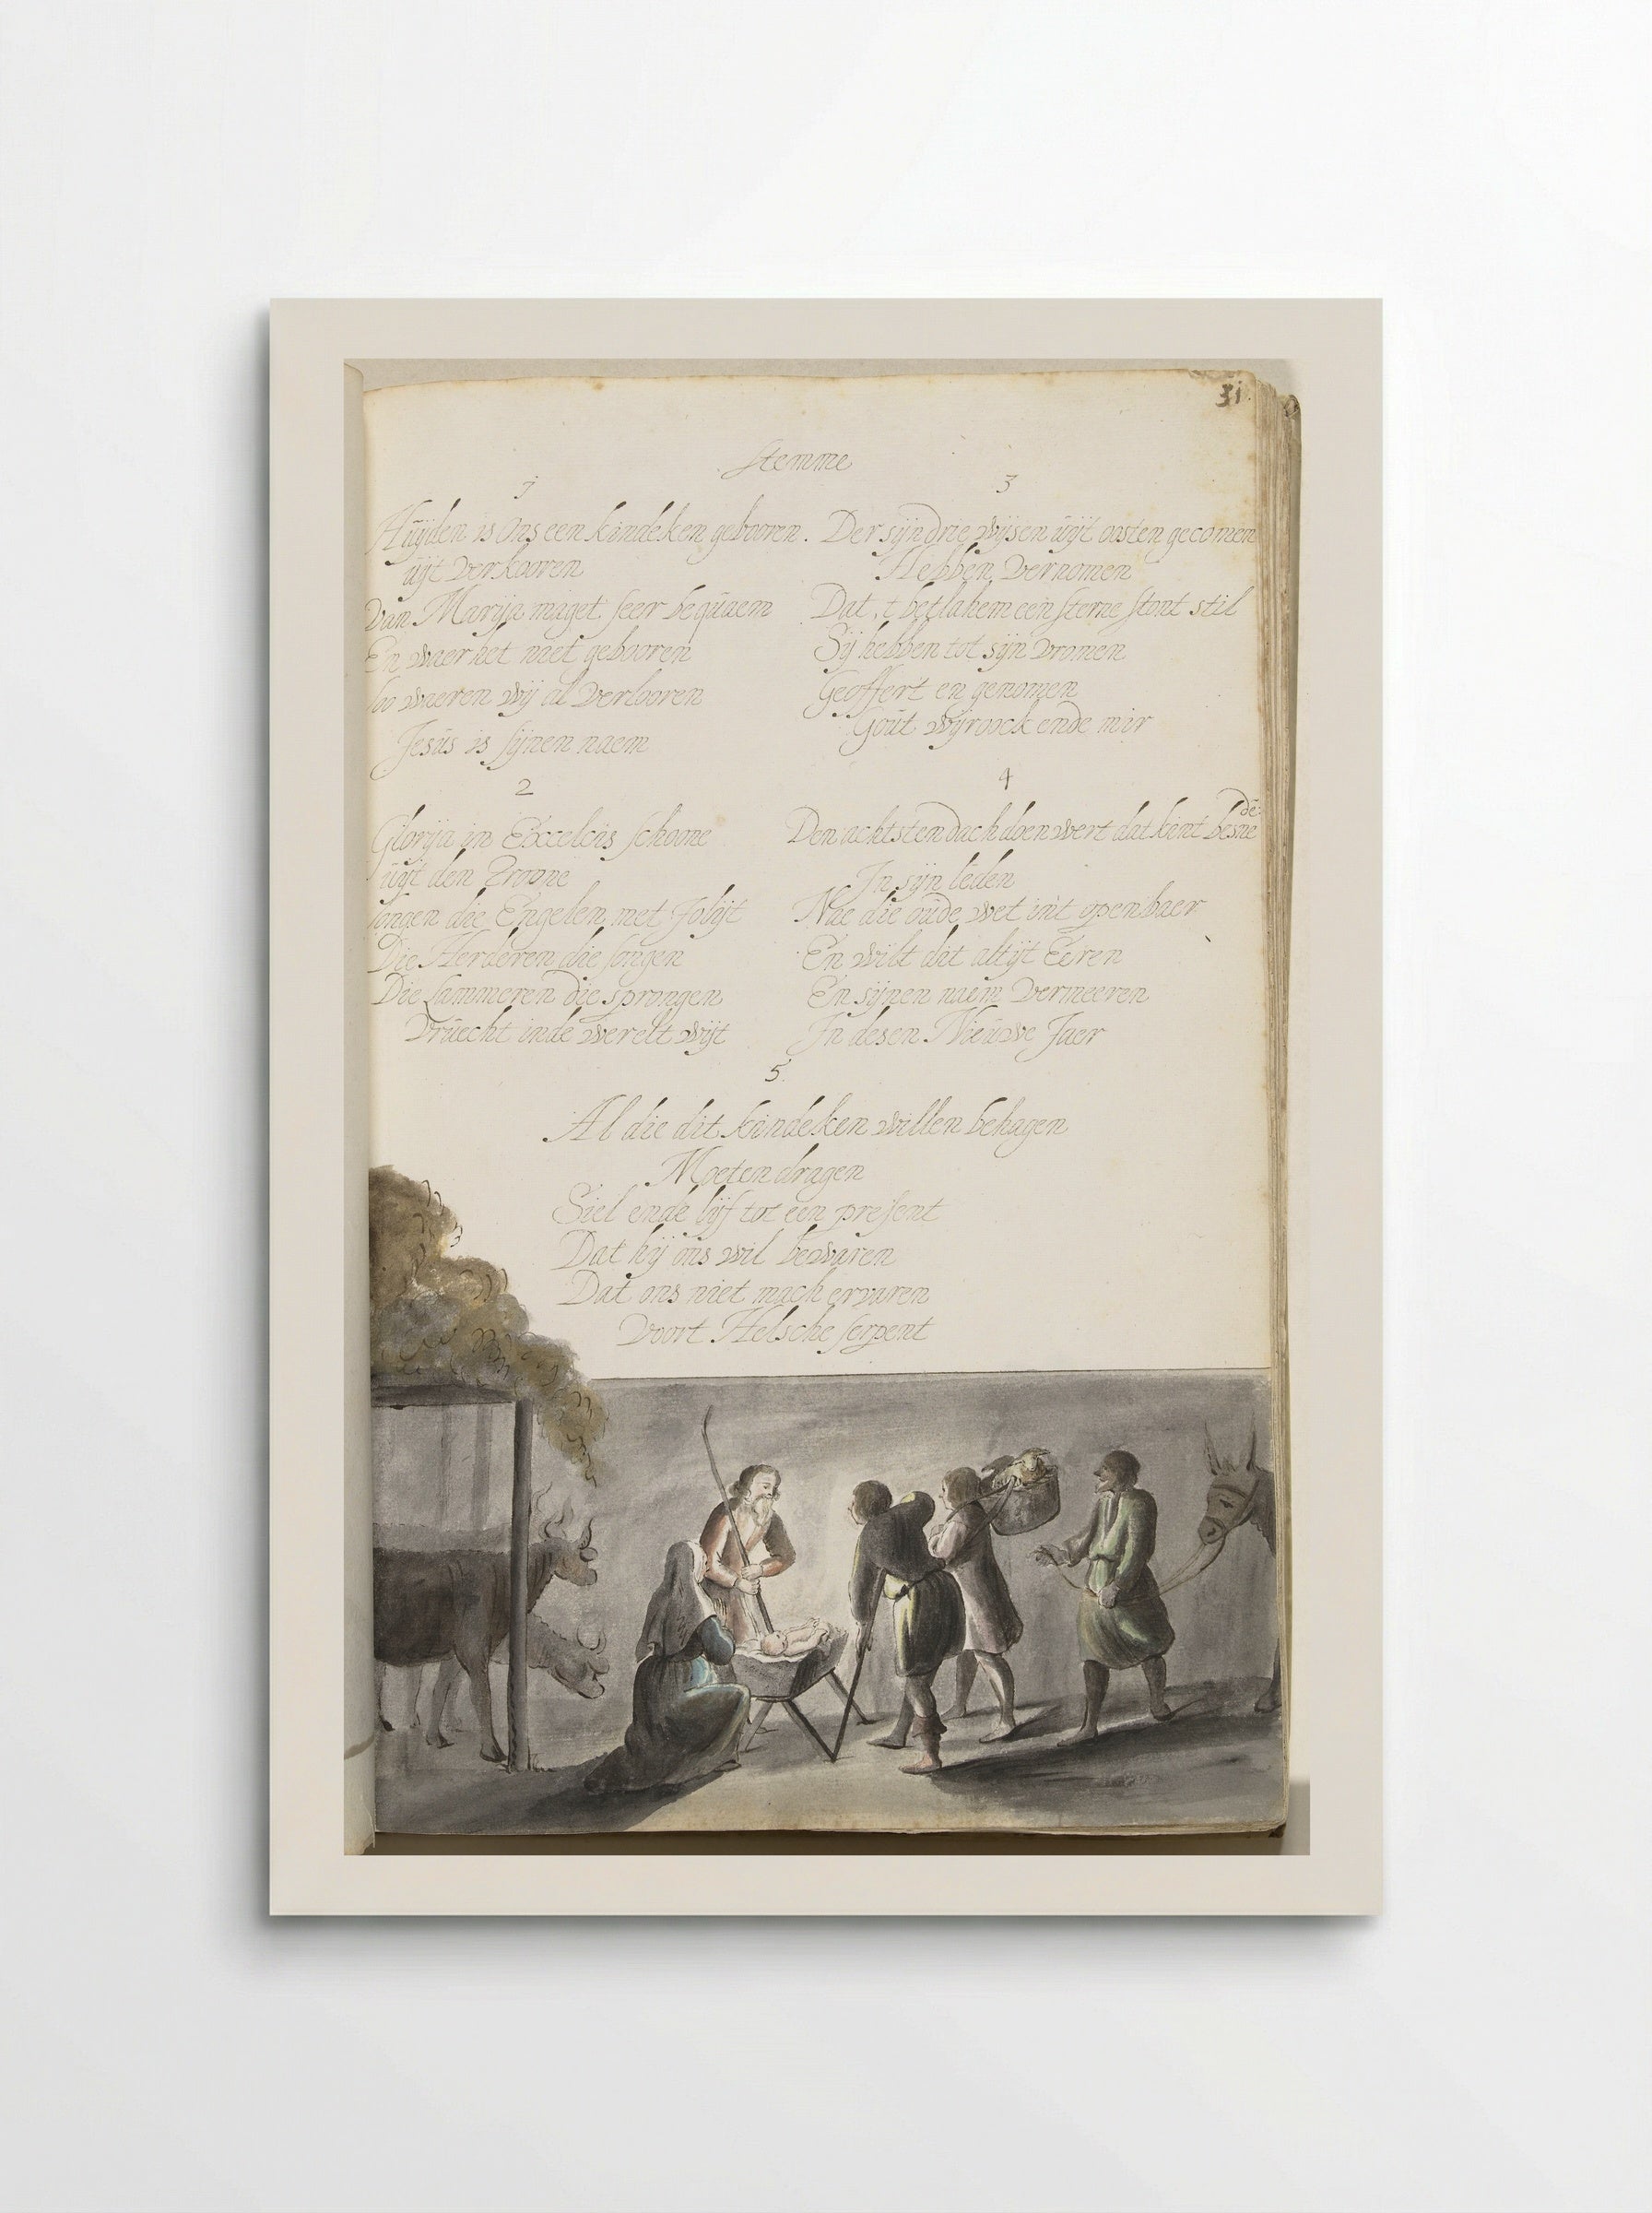 31.
Stemme
1
Huyden is Ons een kindeken gebooren.
uijt Verkooren
Van Marija maget seer bequaem
En waer het niet gebooren
soo waeren wij al Verlooren
Jesus is sijnen naem
2
Glorija in Excelcis schoone
uijt den Troone
songen die Engelen met Jolijt
Die Herderen die songen
Die Lammeren die sprongen
Vruecht inde werelt wijt
3
Der sijn drie wijsen uijt oosten gecomen
Hebben Vernomen
Dat t betlahem een sterne stont stil
Sij hebben tot sijn Vromen
Geoffert en genomen
Gout wijroock ende mir
4
Den achtsten dach doen wert dat kint besne
de:
In sijn leden
Nae die oude wet int openbaer
En wilt dit altijt Eeren
En sijnen naem Vermeeren
In desen Nieuwe Jaer
5
Al die dit kindeken willen behagen
Moeten dragen
Siel ende lijf tot een present
Dat hij ons wil bewaren
Dat ons niet mach ervaren
Voort Helsche serpent